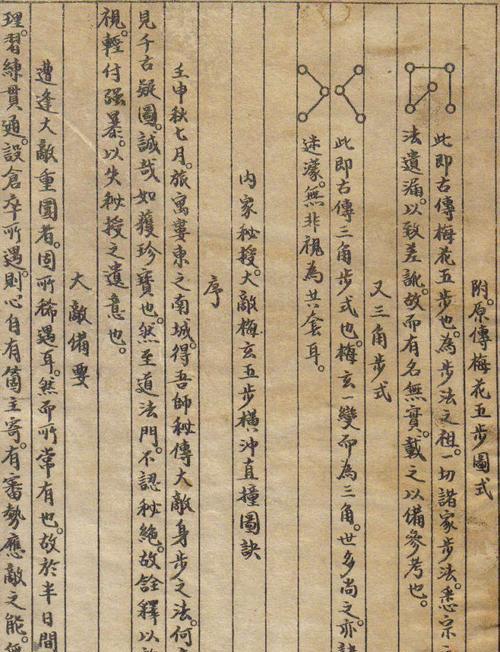 附。原傳梅花五步圖式
此即古傳梅花五步也。為步法之祖。一切諸家步法。悉宗
法遺漏。以致差訛。故而有名無實。載之以備參考也。
又三角步式
此即古傳三角步式也。梅玄一變而為三角。世多尚之。亦
迷濛。無非視為共套耳。
內家秘授。大敵梅玄五步橫沖直撞圖訣
序
壬申秋七月。旅寓婁東之南城。得吾師秘傳大敵身步之法。何
見千古疑圖。誠哉如獲珍寶也。然至道法門。不認秘絕。故詮釋以
視輕付强暴。以失秘授之遺意也。
大敵備要
遭逢大敵重圍者。固所稀遇耳。然而所常有也。故於半日間
理習練貫通。設倉卒所遇。則心自有箇主寄。有審勢應敵之能。